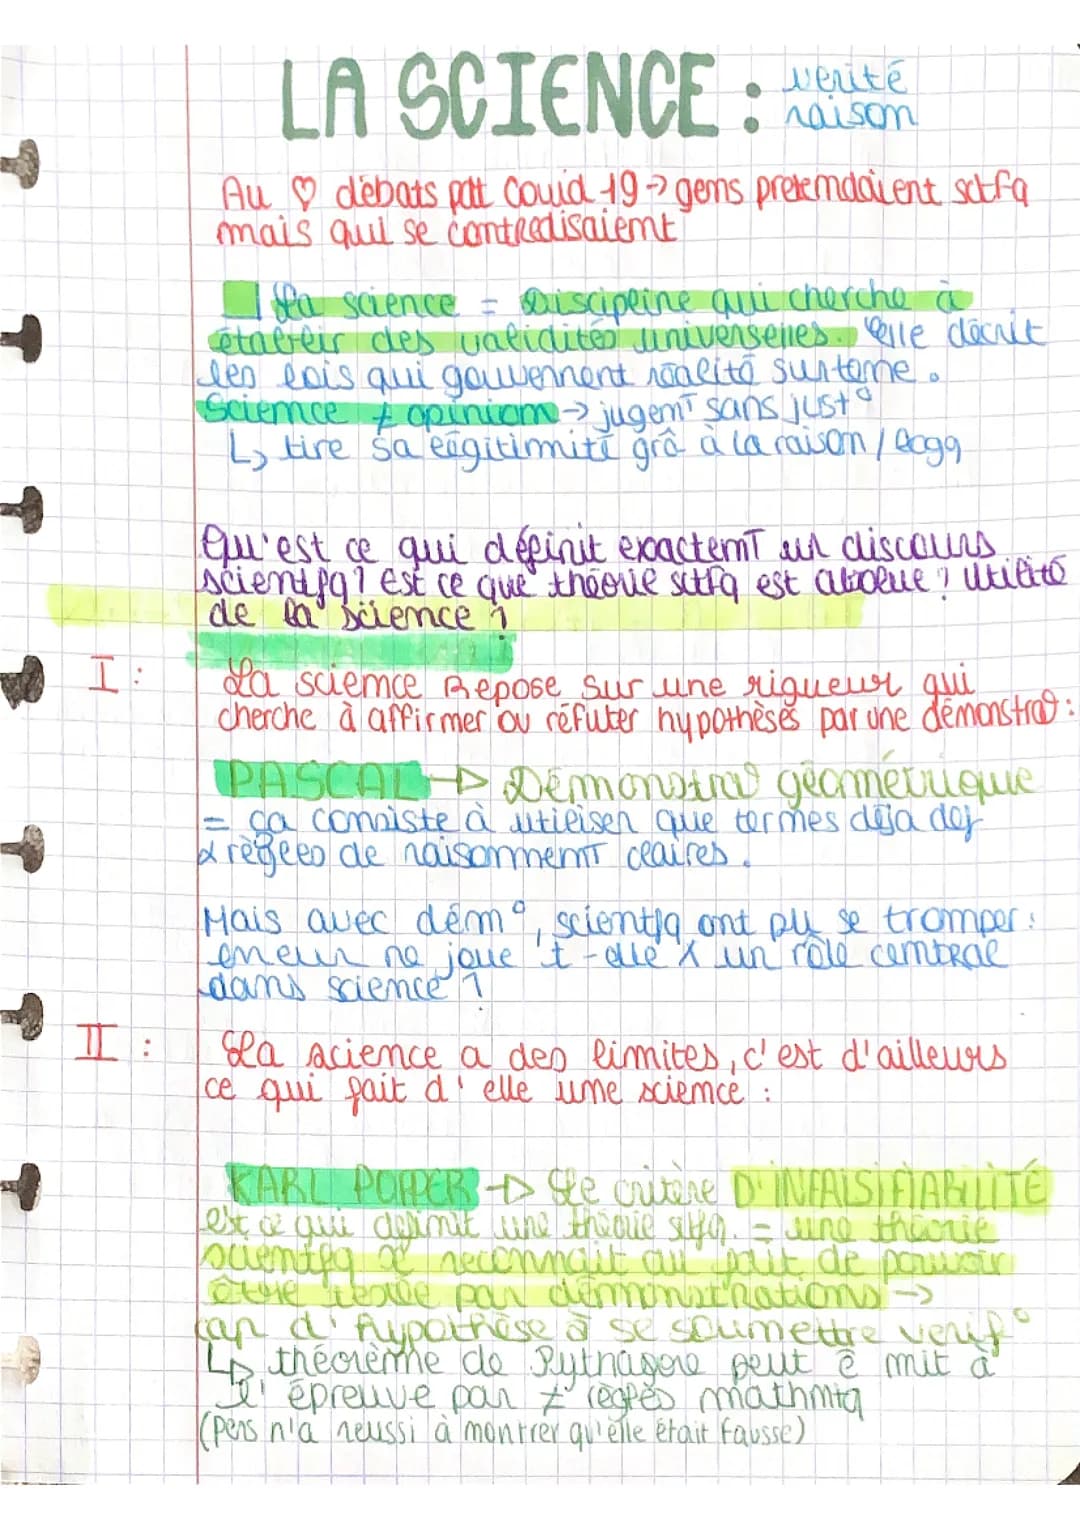 LA SCIENCE : vérité
raison
Au ♡ débats pdt Covid-19 → gens pretendaient sctfq
mais qui se contredisaient
La science = Discipline qui cherche à
établir des validités universelles. Elle décrit
les lois qui gouvernent réalité surtome.
Science ≠ opinion → jugemT sans just°
↳ tire sa légitimmité grâ à la raison / logq
Qu'est ce qui définit exactemT un discours
scientifq? Est ce que théorie sctfq est absolue? Utilité
de la science?
I : La science Repose sur une rigueur qui
cherche à affirmer ou réfuter hypothèses par une démonstrat° :
PASCAL → Démonstrat° géométrique
= ça consiste à utiliser que termes déja def
& règles de raisonnemT claires.
Mais avec dém°, scientfq ont pu se tromper :
erreur ne joue t-elle X un rôle central
dans science?
II : La science a des limites, c'est d'ailleurs
ce qui fait d'elle une science :
KARL POPPER → Le critère D'INFALSIFIABILITÉ
est ce qui définit une théorie sctfq. = une théorie
scientifq se reconnait au fait de pouvoir
être testée par démonstrations →
cap d'hypothèse à se soumettre verif°
↳ théorème de Pythagore peut ê mit à
l'épreuve par ≠ règles mathmtq
(Pers n'a reussi à montrer qu'elle était fausse)